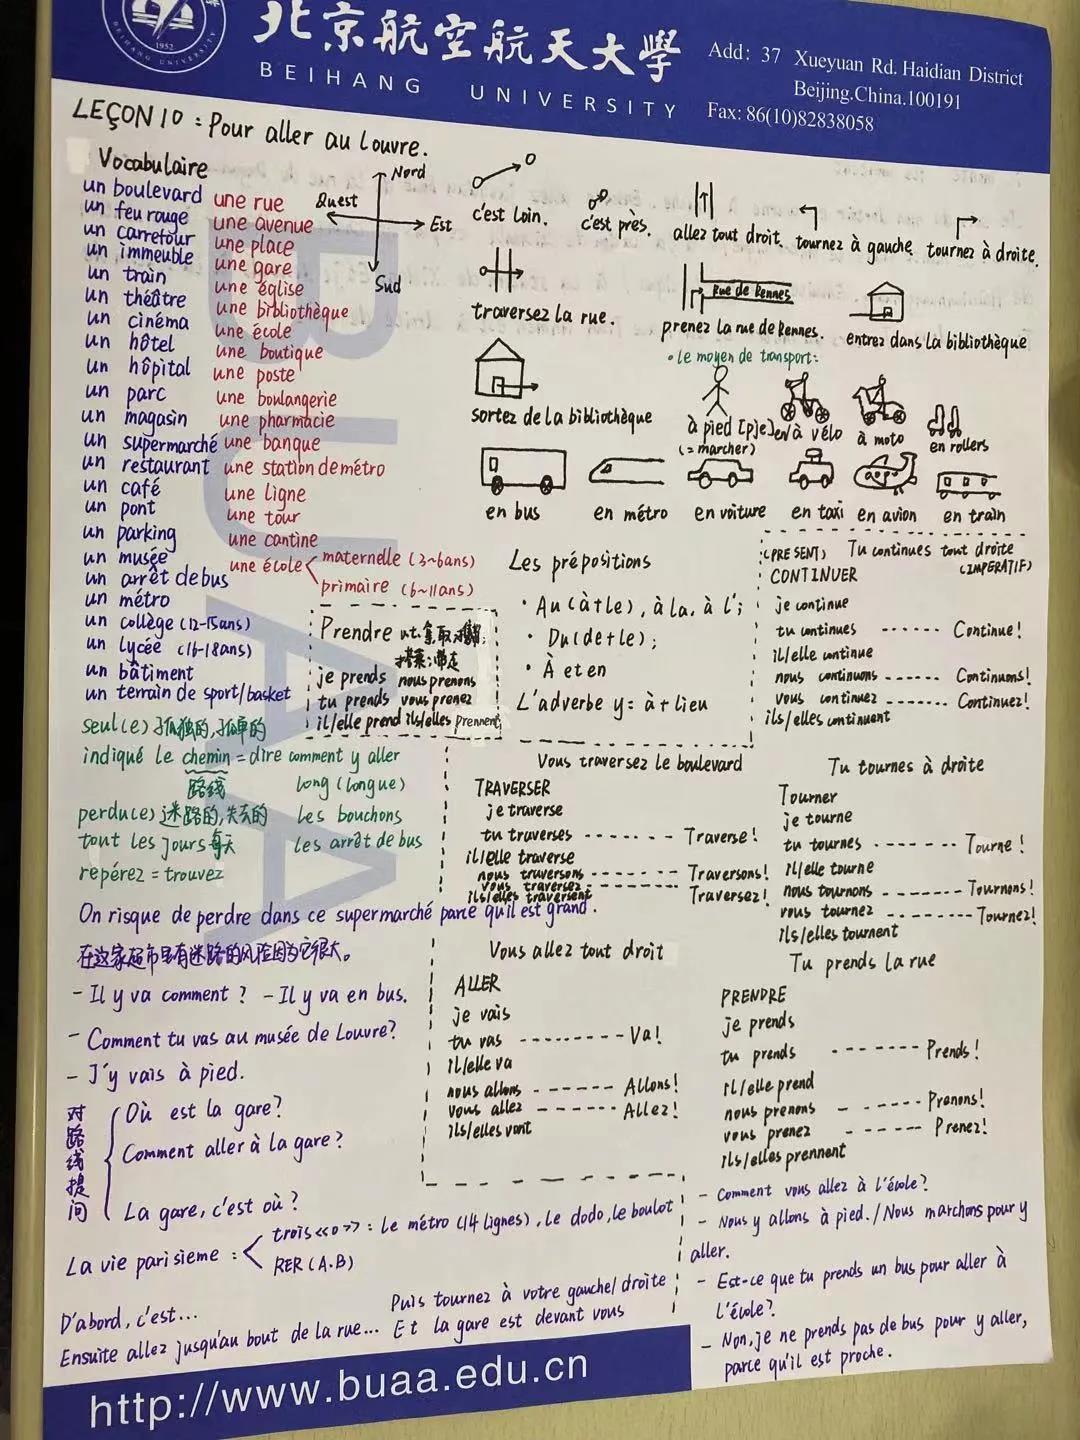 北京航空航天大學
BEIHANG UNIVERSITY
BEIHANG UNIVERSITY
1952
Add: 37 Xueyuan Rd. Haidian District
Beijing.China.100191
Fax: 86(10)82838058
LEÇON 10 : Pour aller au Louvre.
Vocabulaire
un boulevard
un feu rouge
un carrefour
un immeuble
un train
un théâtre
un cinéma
un hôtel
un hôpital
un parc
un magasin
un supermarché
un restaurant
un café
un pont
un parking
un musée
un arrêt de bus
un métro
un collège (12-15ans)
un lycée (16-18ans)
un bâtiment
un terrain de sport/basket
une rue
une avenue
une place
une gare
une église
une bibliothèque
une école
une boutique
une poste
une boulangerie
une pharmacie
une banque
une station de métro
une ligne
une tour
une cantine
une école
maternelle (3~6ans)
primaire (6~11ans)
Nord
Ouest
Est
Sud
c'est loin.
c'est près.
allez tout droit.
tournez à gauche.
tournez à droite.
traversez la rue.
Rue de Rennes
prenez la rue de Rennes.
entrez dans la bibliothèque
sortez de la bibliothèque
• le moyen de transport:
à pied [pje]
(=marcher)
en/à vélo
à moto
en rollers
en bus
en métro
en voiture
en taxi
en avion
en train
Prendre vt.
je prends nous prenons
tu prends vous prenez
il/elle prend ils/elles prennent
Les prépositions
· Au (à+le), à la, à l';
· Du (de+le);
· À et en
L'adverbe y = à + lieu
(PRESENT) Tu continues tout droite
(IMPERATIF)
CONTINUER
je continue
tu continues ------ Continue!
il/elle continue
nous continuons ------ Continuons!
vous continuez ------ Continuez!
ils/elles continuent
seul(e) 孤独的,孤单的
indiqué le chemin = dire comment y aller
路线
long (longue)
perdu(e) 迷路的,失去的
les bouchons
tout les jours 每天
les arrêt de bus
repérez = trouvez
Vous traversez le boulevard
TRAVERSER
je traverse
tu traverses ------- Traverse!
il/elle traverse
nous traversons ------- Traversons!
vous traversez ------- Traversez!
ils/elles traversent
Tu tournes à droite
Tourner
je tourne
tu tournes ------- Tourne!
il/elle tourne
nous tournons ------- Tournons!
vous tournez ------- Tournez!
ils/elles tournent
On risque de perdre dans ce supermarché parce qu'il est grand.
在这家超市里有迷路的风险因为它很大。
- Il y va comment? - Il y va en bus.
- Comment tu vas au musée de Louvre?
- J'y vais à pied.
对路线提问
Où est la gare?
Comment aller à la gare?
La gare, c'est où?
Vous allez tout droit
ALLER
je vais
tu vas --------- Va!
il/elle va
nous allons ------- Allons!
vous allez ------- Allez!
ils/elles vont
Tu prends la rue
PRENDRE
je prends
tu prends ------- Prends!
il/elle prend
nous prenons ------ Prenons!
vous prenez ------ Prenez!
ils/elles prennent
La vie parisieme :
trois <<o>> : le métro (14 lignes), le dodo, le boulot
RER (A.B)
D'abord, c'est...
Ensuite allez jusqu'au bout de la rue...
Puis tournez à votre gauche/droite
Et la gare est devant vous
- Comment vous allez à l'école?
- Nous y allons à pied. / Nous marchons pour y
aller.
- Est-ce que tu prends un bus pour aller à
l'école?
- Non, je ne prends pas de bus pour y aller,
parce qu'il est proche.
BUAA
http://www.buaa.edu.cn